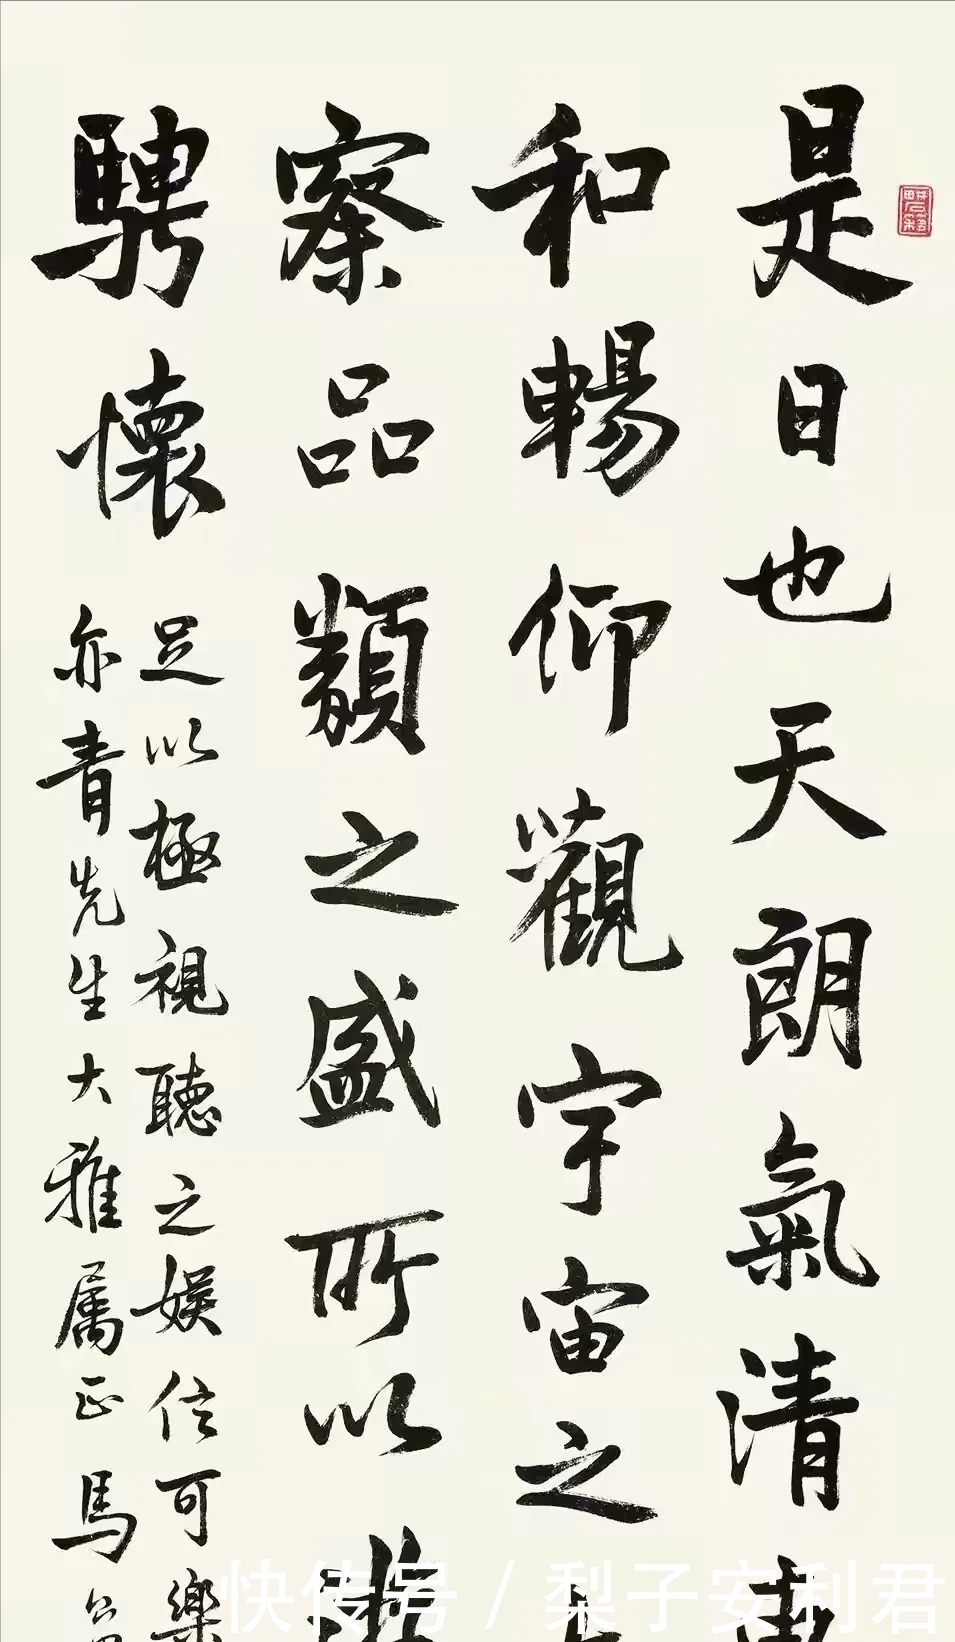 是日也天朗氣清惠
和暢仰觀宇宙之大
察品類之盛所以遊
騁懷
足以極視聽之娛信可樂
亦青先生大雅屬正馬
快传号 / 梨子安利君